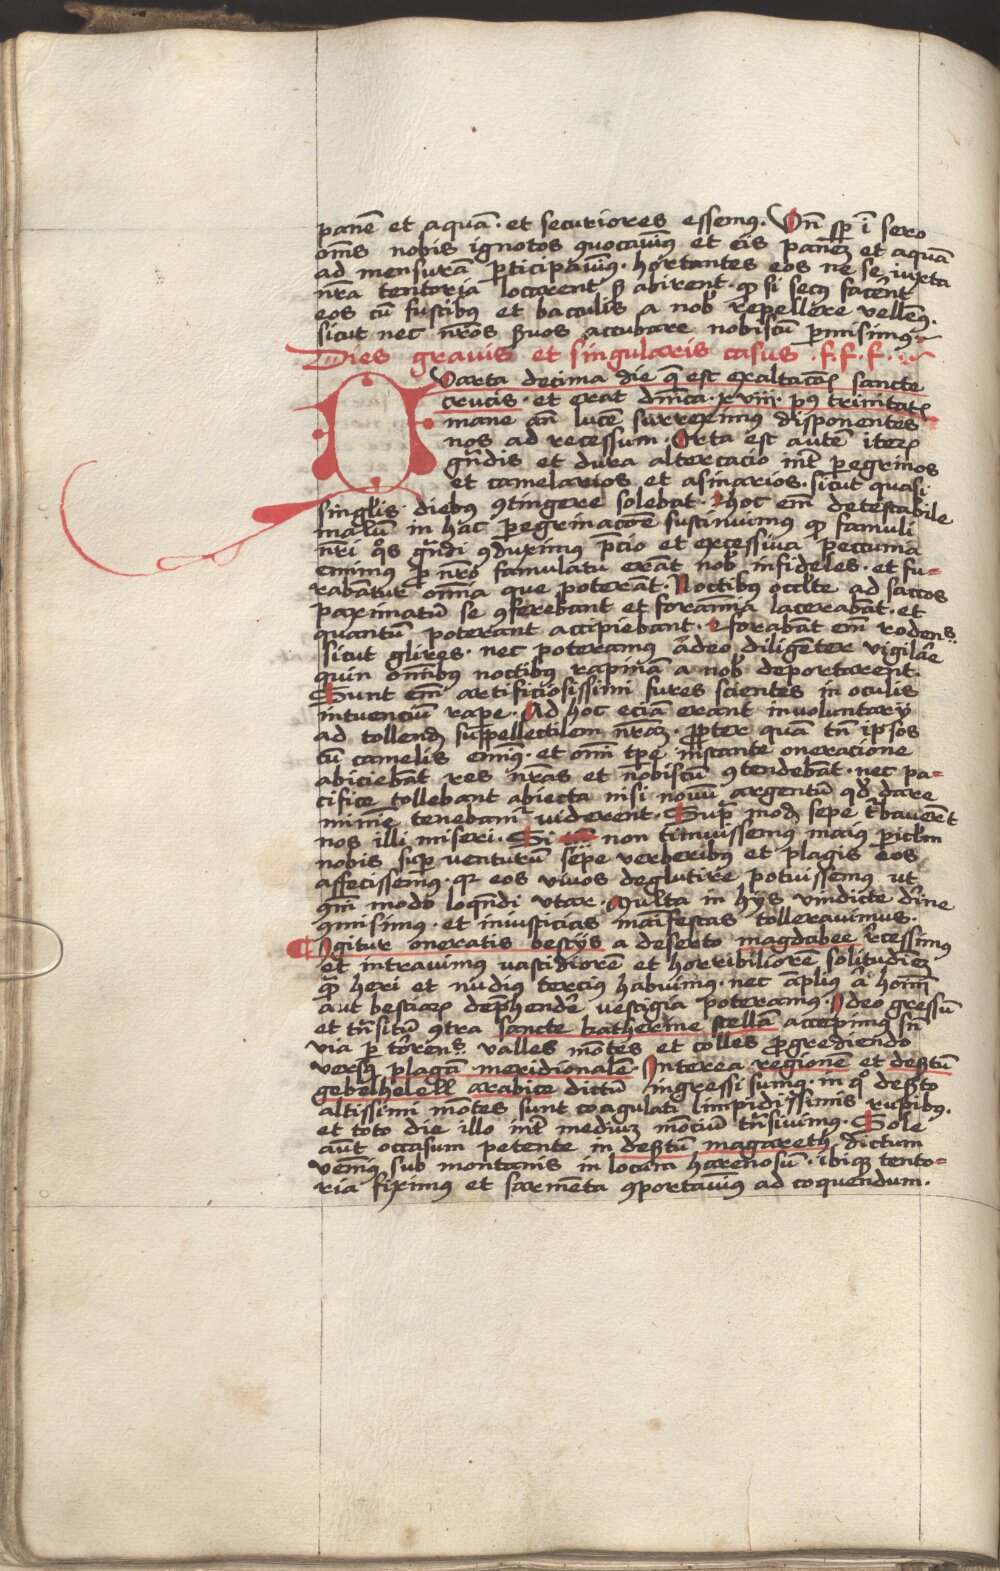 panē et aquā · et securiores essemꝰ. Vn̄ sꝑ ī sero
om̄s nobis ignotos ꝯuocauimꝰ et eis panē et aquā
ad mensurā ꝑticipauimꝰ · hortantes eos ne se iuxta
nr̄a tentoria locarent sꝫ abirent · ꝙ si secꝰ facerēt
eos cū fustibꝰ et baculis a nob̄ repellere vellemꝰ ·
sicut nec nr̄os ẜuos accubare nobiscū ꝑmisimꝰ ·
Dies grauis et singularis casus · f · f · f ·
Quarta decima die q̄ est exaltacōis sancte
crucis · et erat dn̄ica · xviii · pꝰ trinitatꝭ
mane an̄ lucē surreximus disponentes
nos ad recessum · Orta est autē iteꝝ
gn̄dis et dura altercacio int̄ peregrinos
et camelarios et asinarios · sicut quasi
singlis diebꝰ ꝯtingere solebat · hoc em̄ detestabile
malū in hac peregrinacōe sustinuimus ꝙ famuli
nr̄i q̊s gn̄di ꝯduximus p̄cio et excessiua peccunia
emimus ꝓ nr̄o famulatu erāt nob̄ infideles · et fu-
rabātur om̄ia que poterāt · Noctibꝰ occl̄te ad saccos
paximatū se ꝯferebant et foram̄ia lacerabāt · et
quantū poterant accipiebant · forabāt em̄ rodens
sicut glires · nec poteramus adeo diligenter vigilar̄e
quin om̄ibus noctibus rapinā a nob̄ deportarent ·
Sunt em̄ artificiosissimi fures scientes in oculis
intuenciū rape · Ad hoc eciā erant inuoluntarÿ
ad tollendꝫ suppellectilem nr̄aꝫ · ꝓpter quā tn̄ ipsos
cū camelis emimꝰ · et om̄i tꝑe instante oneracione
abiciebāt res nr̄as et nobiscū ꝯtendebāt · nec pa-
cifice tollebant abiecta nisi nouū argentū qd̄ dare
minīe tenebamᷣ viderent · Supͣ modꝫ sepe tᷣbauer̄t
nos illi miseri · Si non timuissemus maius ꝑiclm
nobis suꝑ venturū sepe verberibus et plagis eos
affecissemꝰ · qꝛ eos viuos deglutire potuissemus ut
gm̄i modo loqn̄di vtar · Multa in hÿs vindicte dīne
ꝯmisimus · et iniusticias maīfestas tollerauimus ·
Igitur oneratis bestÿs a deserto magdabee rc̄essimꝰ
et intrauimus vastidiorē et horribiliorē solitudinē
qͣ heri et nudius tercius habuimus · nec āplius a homī
aut bestiaꝝ dep̄hendere vestigia poteramus · Ideo gressū
et tn̄sitū ꝯtra sancte katherine stellā accepimꝰ in
via ꝑ torrens valles mōtes et colles ꝓgrediendo
versꝰ plagā meridionalē · Interea regionē et desertū
gebelhelell arabice dictū ingressi sumꝰ · in qͦ deserto
altissimi mōtes sunt coagulati limpidissimis rupibꝰ ·
et toto die illo int̄ mediuꝫ mociū tn̄siuimꝰ · Sole
aūt occasum petente in desertū magareth dictum
venimꝰ sub montanis in locum harenosū · ibiqꝫ tento-
ria fiximus et sarmēta ꝯportauimꝰ ad coquendum ·